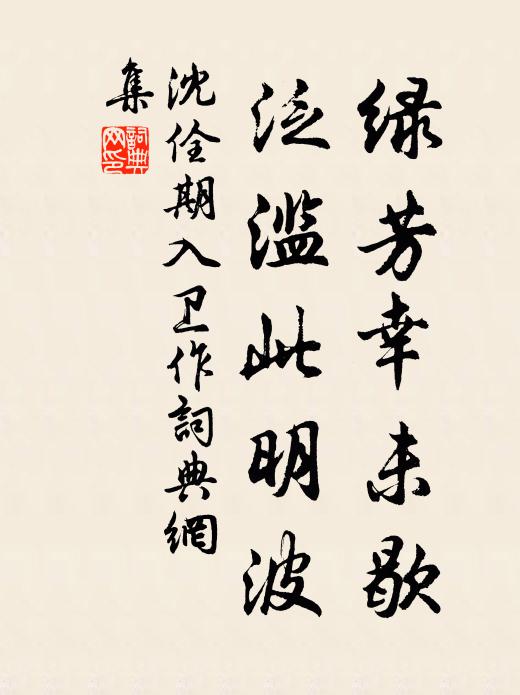 绿芳幸未歇
泛滥此明波
沈佺期入卫作詞典網
集
詞典
网印